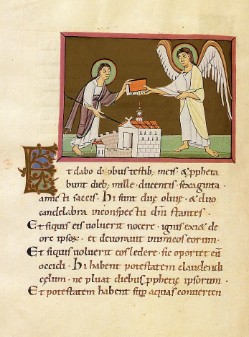 Et dabo duobus testib; meis & ppheta
bunt dieb; mille ducentis sexaginta
amicti saccis. Hi sunt duę oliuę & duo
candelabra inconspectu dñi stantes.
Et siquis eis uoluerit nocere ignis exi& de
ore ipsoꝝ. et deuorauit inimicos eorum.
Et siquis uoluerit eos ledere. sic oportet eū
occidi. Hi habent potestatem claudendi
cęlum. ne pluat dieb; pphetię ipsorum.
Et potestatem habent sup aquas conuerten